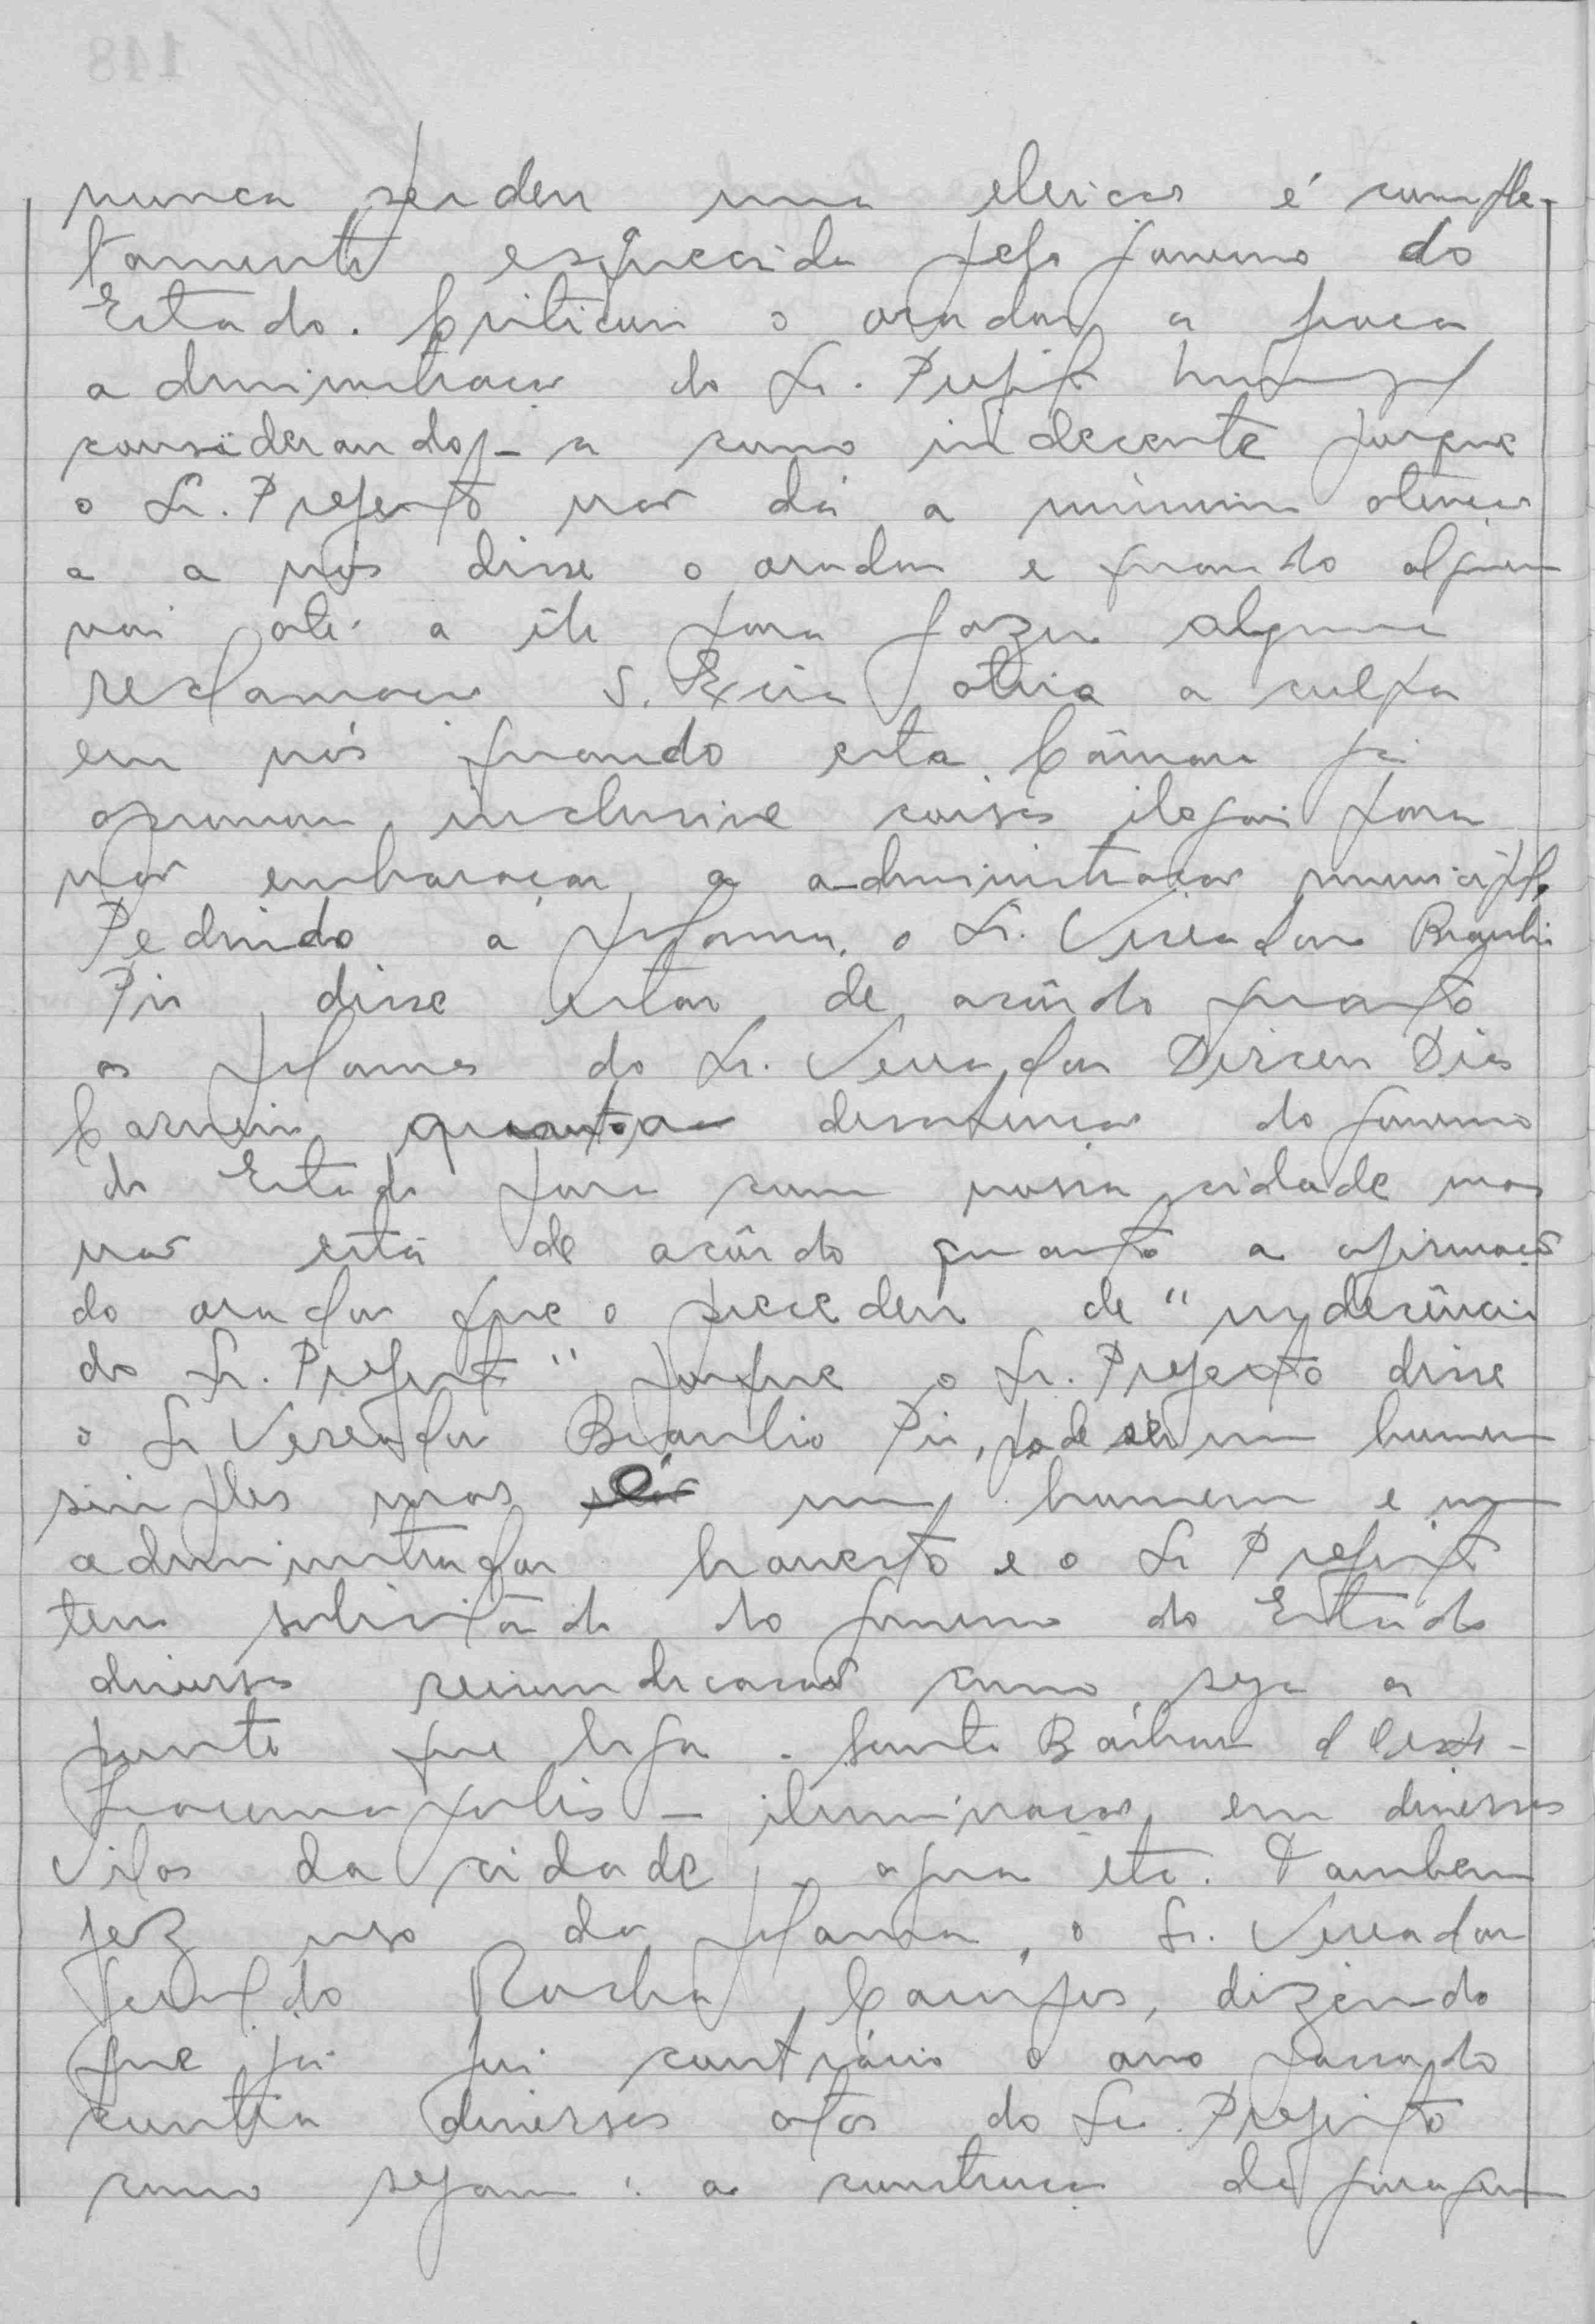 nunca perdeu uma eleicao é comple-
tamente esquecida pelo governo do
Estado. Criticou o orador a fraca
administracao do Sr. Prefeito Municipal
considerando-a como indecente porque
o Sr. Prefeito nao dá a minima atencao
a a nós disse o orador e quando alguem
vai até a êle para fazer alguma
reclamacao S. Excia atira a culpa
em nós quando esta Câmara já
aprovou inclusive coisas ilegais para
nao embaraçar a administracao municipal.
Pedindo a palavra, o Sr. Vereador Braulio
Pio, disse estar de acôrdo quanto
as palavras do Sr. Vereador Dirceu Dias
Carneiro quanto a desatencao do governo
do Estado para com nossa cidade mas
nao está de acôrdo quanto a afirmacao
do orador que o precedeu de "indecência
do Sr. Prefeito" porque o Sr. Prefeito disse
o Sr Vereador Braulio Pio, pode ser um homem
simples mas é um homem e um
administrador honesto e o Sr Prefeito
tem solicitado do governo do Estado
diversas reivindicacoes como seja a
ponte que liga Santa Bárbara d'Oeste -
Iracemapolis - iluminacao em diversas
vilas da cidade, agua etc. Tambem
fez uso da palavra, o Sr. Vereador
Geraldo Rocha Campos, dizendo
que já foi contrário o ano passado
contra diversos atos do Sr. Prefeito
como sejam: a construcao de garagem